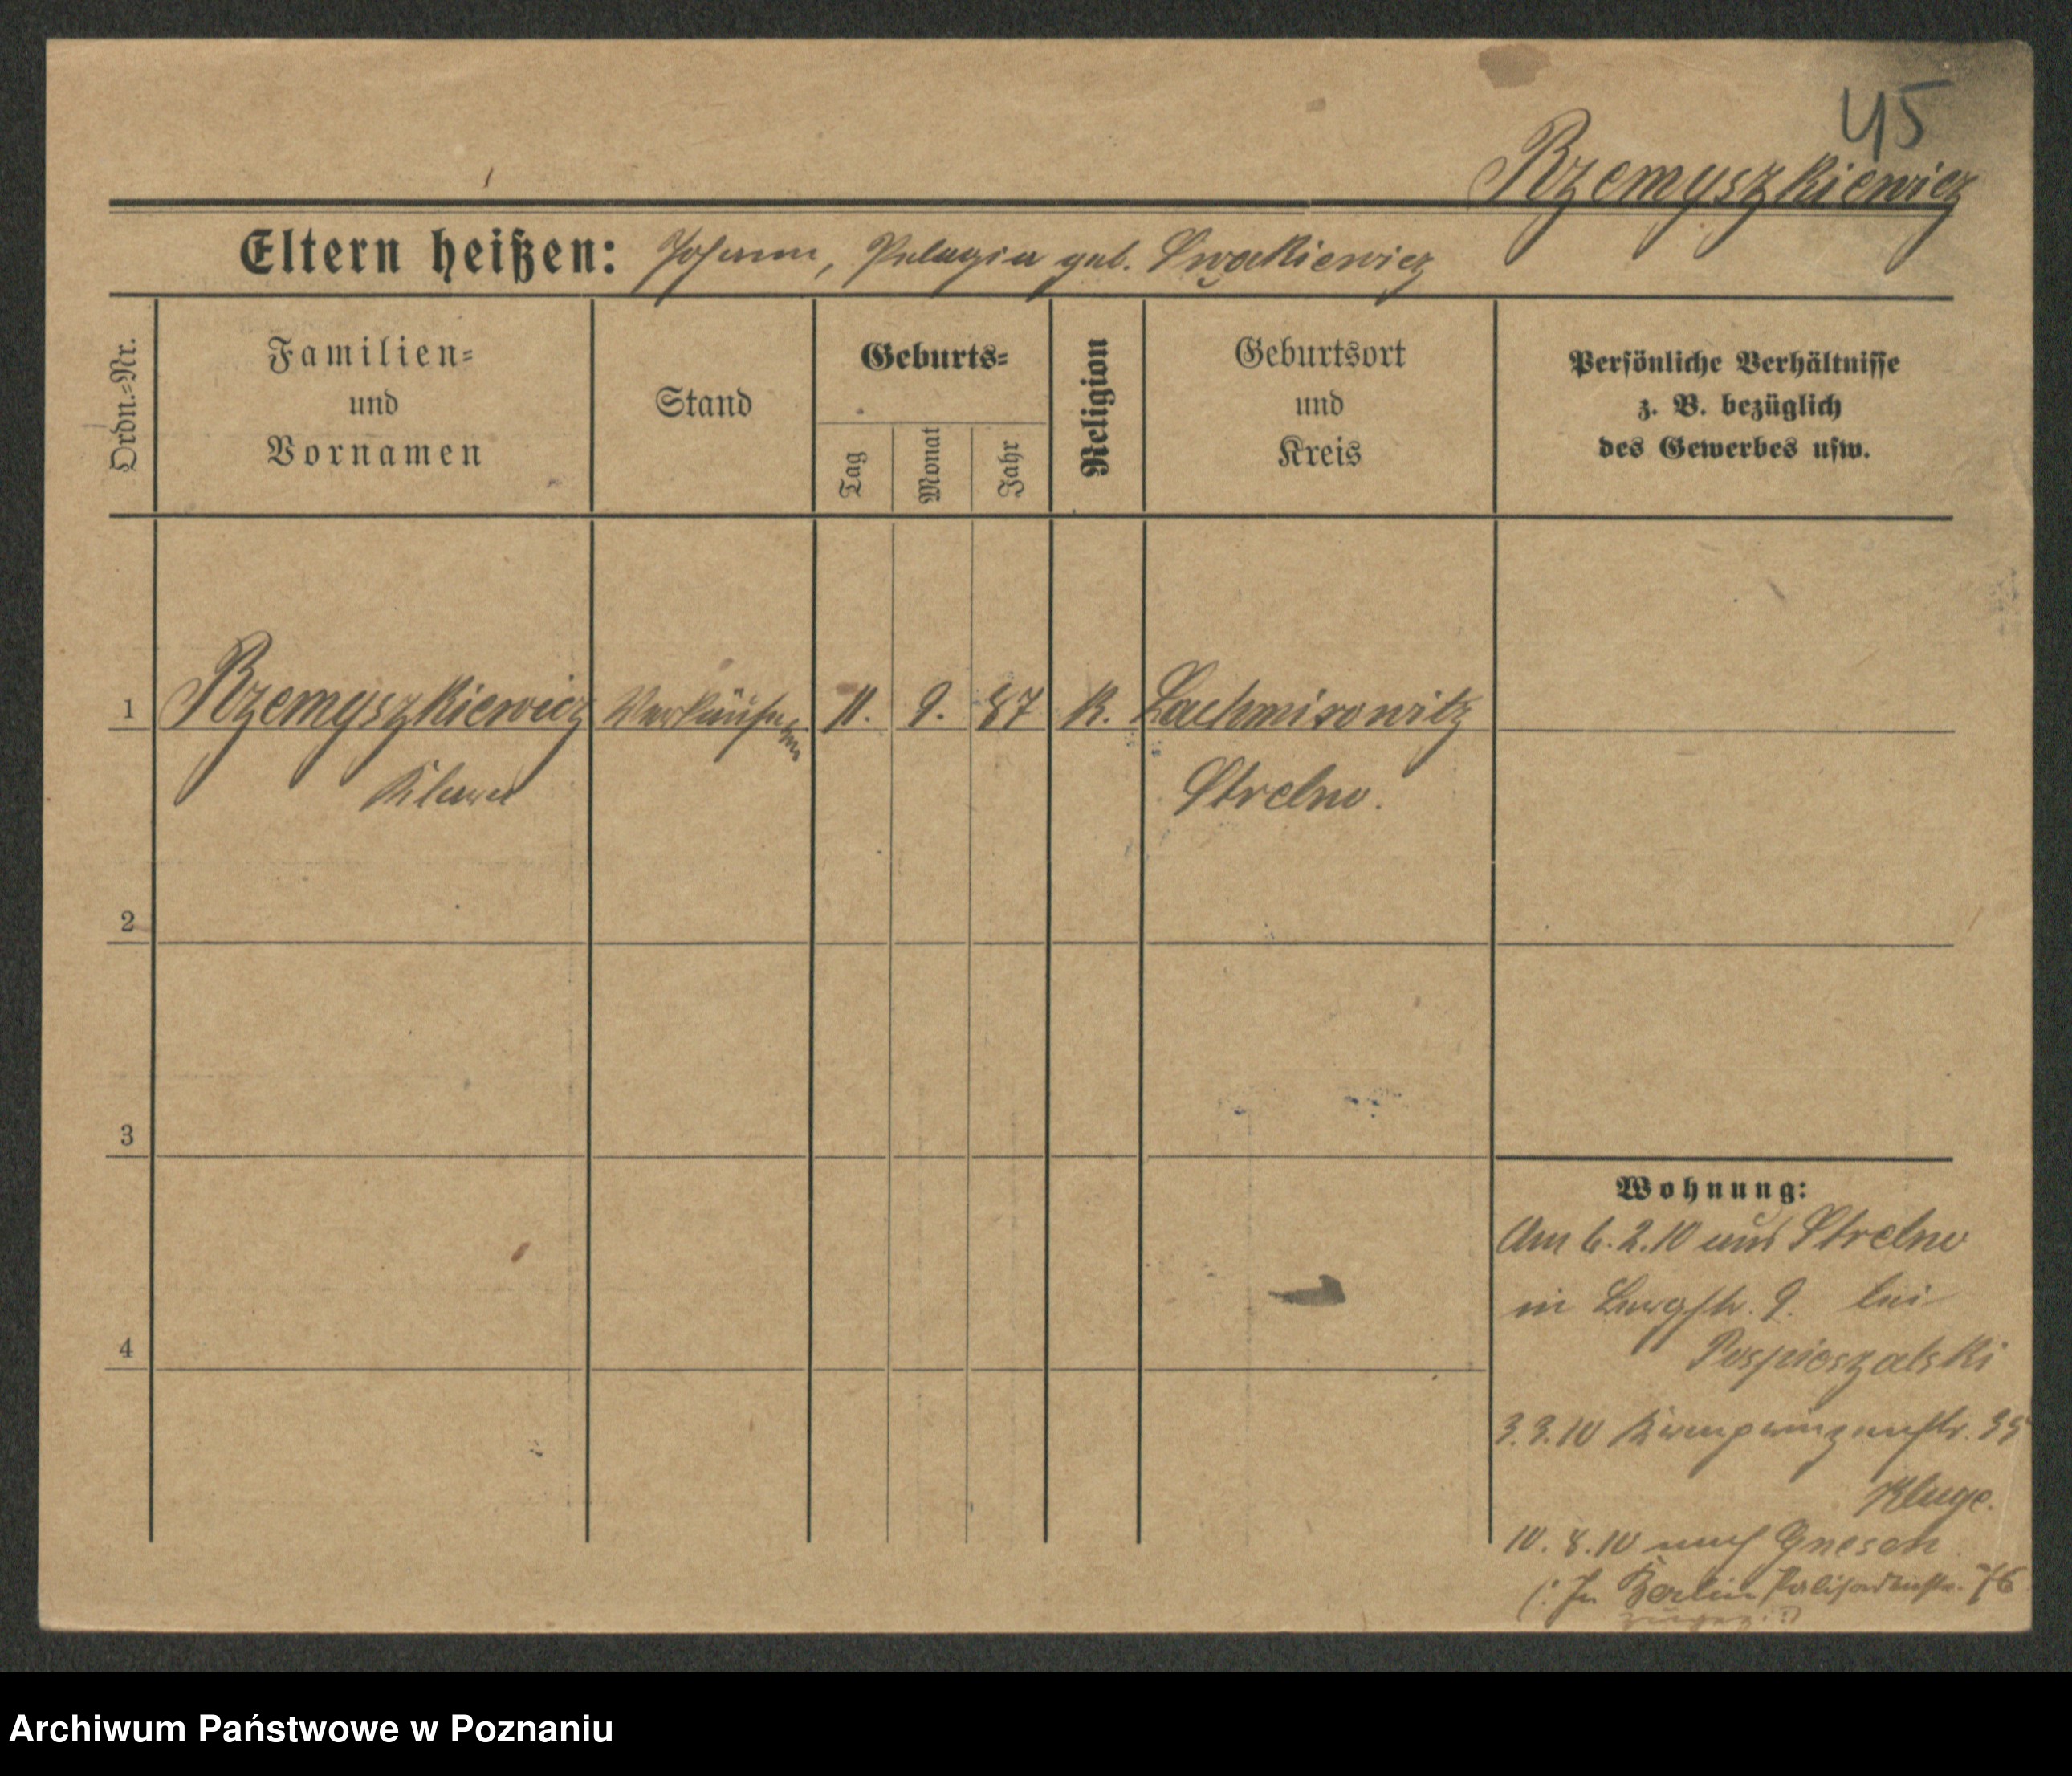 45
Rzemyszkiewicz
Eltern heißen: Johann, Pelagia geb. Swąkiewicz
Ordn.=Nr.
Familien=
und
Vornamen
Stand
Geburts=
Tag
Monat
Jahr
Religion
Geburtsort
und
Kreis
Persönliche Verhältnisse
z. B. bezüglich
des Gewerbes usw.
1 Rzemyszkiewicz Verkäuferin 11. 9. 87 K. Lachmirowitz
Klara Strelno.
2
3
4
Wohnung:
Am 6.2.10 aus Strelno
in Burgstr. 9. bei
Pospieszalski
3.3.10 Kronprinzenstr. 35
Kluge.
10.8.10 nach Gnesen
(: In Berlin Palisadenstr. 76
zugez. :)
Archiwum Państwowe w Poznaniu